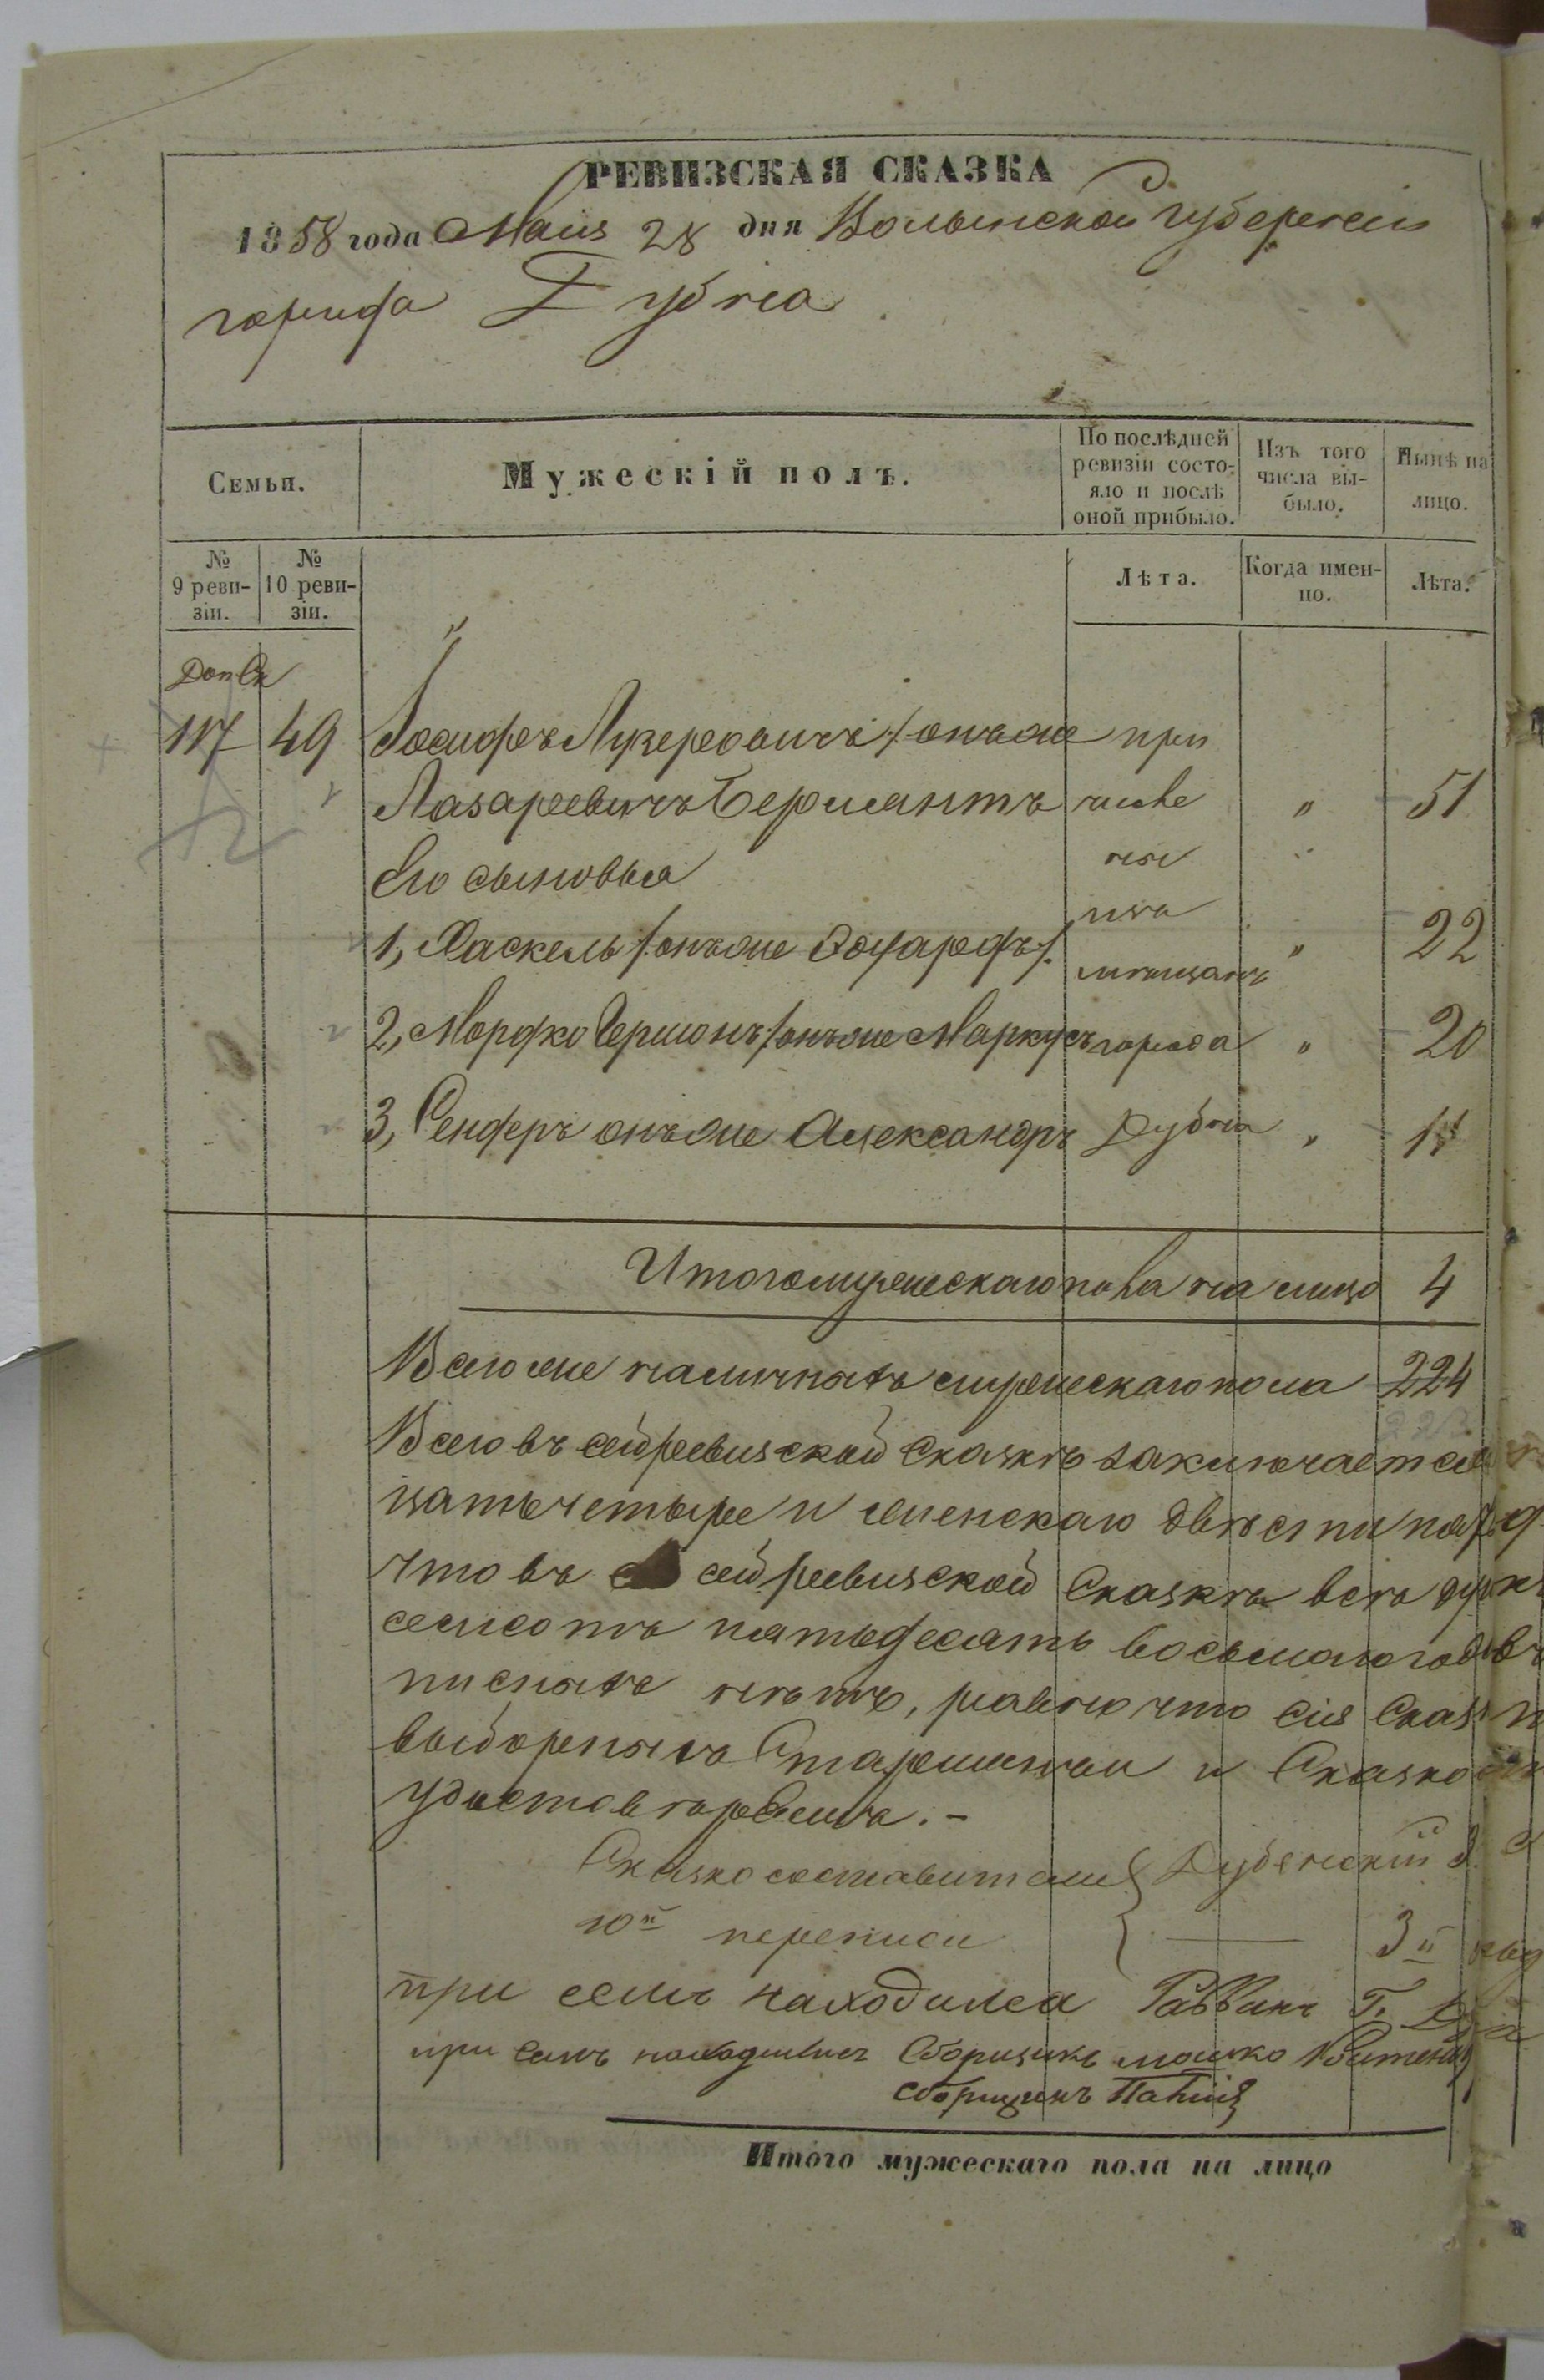 РЕВИЗСКАЯ СКАЗКА
1858 года Маія 28 дня Волынской Губерніи
города Дубна
Семьи.
Мужескій полъ.
По послѣдней ревизіи состо-
яло и послѣ
оной прибыло.
Изъ того
числа вы-
было.
Нынѣ на
лицо.
№
9 реви-
зіи.
№
10 реви-
зіи.
Лѣта.
Когда имен-
но.
Лѣта.
117 49 Іосифъ Лузеровичъ /: онъ же при
Лазаревичъ Бермантъ числе " 51
Его сыновья
1, Хаскель /: онъ же Эдуардъ :/ " 22
мѣщанъ
2, Мордко Гершонъ /: онъ же Маркусъ города " 20
3, Сендеръ онъ же Александръ Дубна "
Итого мужескаго пола на лицо 4
Всего же наличныхъ мужескаго пола 224
Всего въ сей ревизской Сказкѣ заключается
цать четыре и женскаго двѣсти
что въ сей ревизской Сказкѣ всѣ
семсотъ пятьдесятъ восьмаго
писныхъ нѣтъ, равно что сія
выборныхъ Старшинъ и
удостовѣрена. -
Сказкосоставители Дубенскій
10й переписи 3й
при семъ находился Раввинъ Г.
при семъ находились Сборщикъ Мошко
Сборщикъ
Итого мужескаго пола на лицо